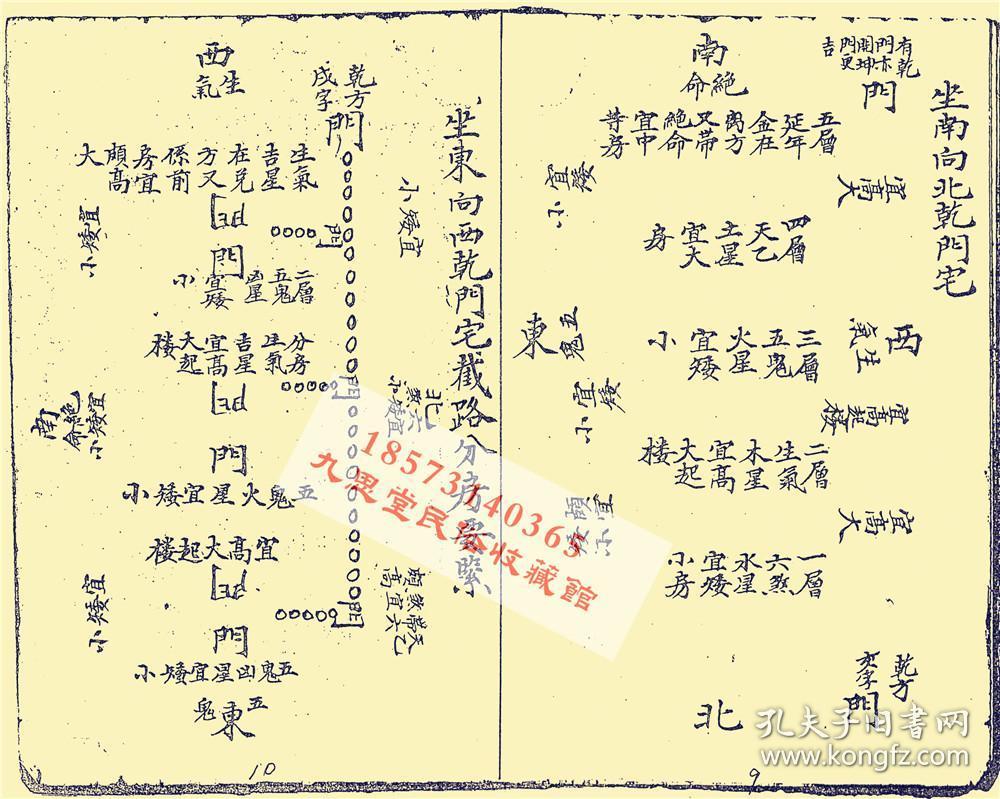 坐南向北乾門宅
有乾
門亦
開坤
門更
吉
門
南
絕
命
五層
延年
金在
离方
又带
絕命
宜中
等房
宜矮
小
宜高大
四層
天乙
土星
宜大
房
西
生
氣
東
五
鬼
三層
五鬼
火星
宜矮
小
宜高起楼
宜矮
小
二層
生氣
木星
宜高
大起
楼
宜高大
一層
六煞
水星
宜矮
小房
乾方
門
北
9
坐東向西乾門宅截路分房要緊
西
生
氣
乾方
戌字
門
小矮宜
生氣
吉星
在兑
方又
係前
房宜
頗高
大
門
小矮宜
門
二層
五鬼
凶星
宜矮
小
分房
生氣
吉星
宜高
大起
楼
門
北
六
煞
小矮宜
南
絕
命
小矮宜
門
五鬼火星宜矮小
宜高大起楼
門
小矮宜
門
五鬼凶星宜矮小
東
五
鬼
10
18573140365
九思堂民俗收藏館
孔夫子旧書网
www.kongfz.com